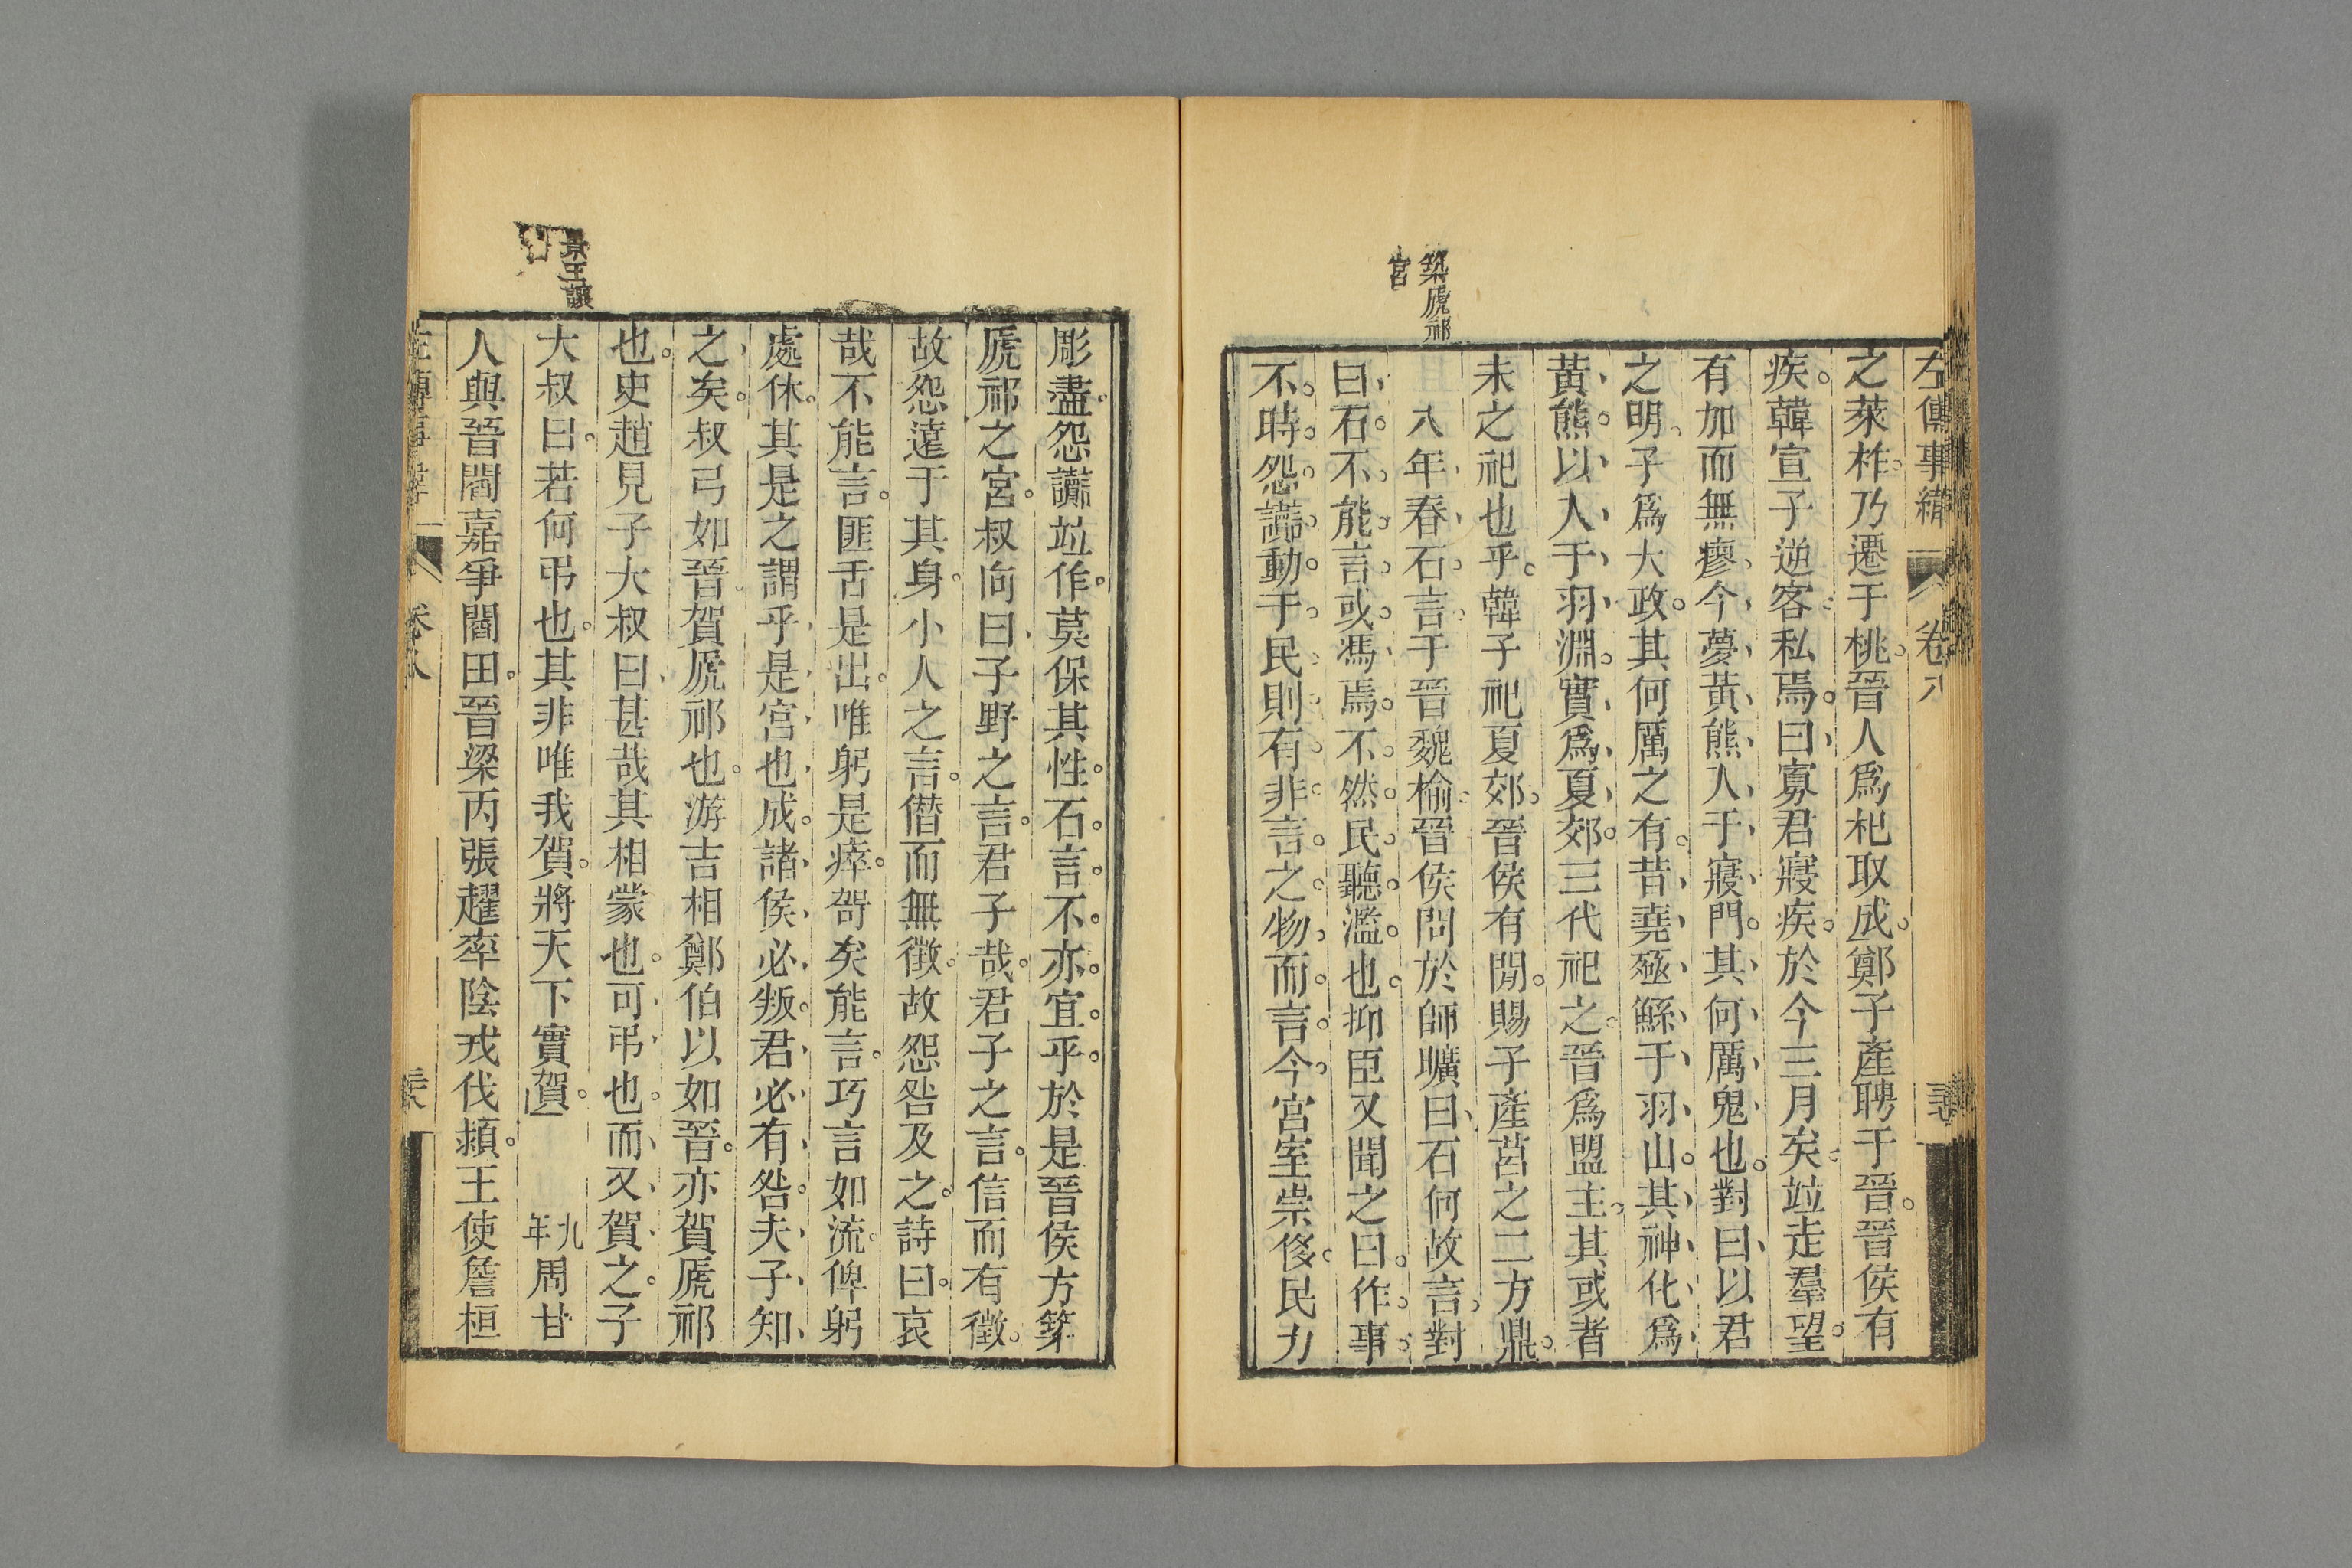 左傳事緯 卷八
之萊柞乃遷于桃晉人爲杞取成鄭子產聘于晉晉侯有
疾韓宣子逆客私焉曰寡君寢疾於今三月矣竝走羣望
有加而無瘳今夢黃熊入于寢門其何厲鬼也對曰以君
之明子爲大政其何厲之有昔堯殛鯀于羽山其神化爲
黃熊以入于羽淵實爲夏郊三代祀之晉爲盟主其或者
未之祀也乎韓子祀夏郊晉侯有閒賜子產莒之二方鼎
築虒祁
宮
八年春石言于晉魏榆晉侯問於師曠曰石何故言對
曰石不能言或馮焉不然民聽濫也抑臣又聞之曰作事
不時怨讟動于民則有非言之物而言今宮室崇侈民力
彫盡怨讟竝作莫保其性石言不亦宜乎於是晉侯方築
虒祁之宮叔向曰子野之言君子哉君子之言信而有徵
故怨遠于其身小人之言僭而無徵故怨咎及之詩曰哀
哉不能言匪舌是出唯躬是瘁哿矣能言巧言如流俾躬
處休其是之謂乎是宮也成諸侯必叛君必有咎夫子知
之矣叔弓如晉賀虒祁也游吉相鄭伯以如晉亦賀虒祁
也史趙見子大叔曰甚哉其相蒙也可弔也而又賀之子
景王讓
大叔曰若何弔也其非唯我賀將天下實賀 九年周甘
人與晉閻嘉爭閻田晉梁丙張趯率陰戎伐潁王使詹桓
左傳事緯 卷八